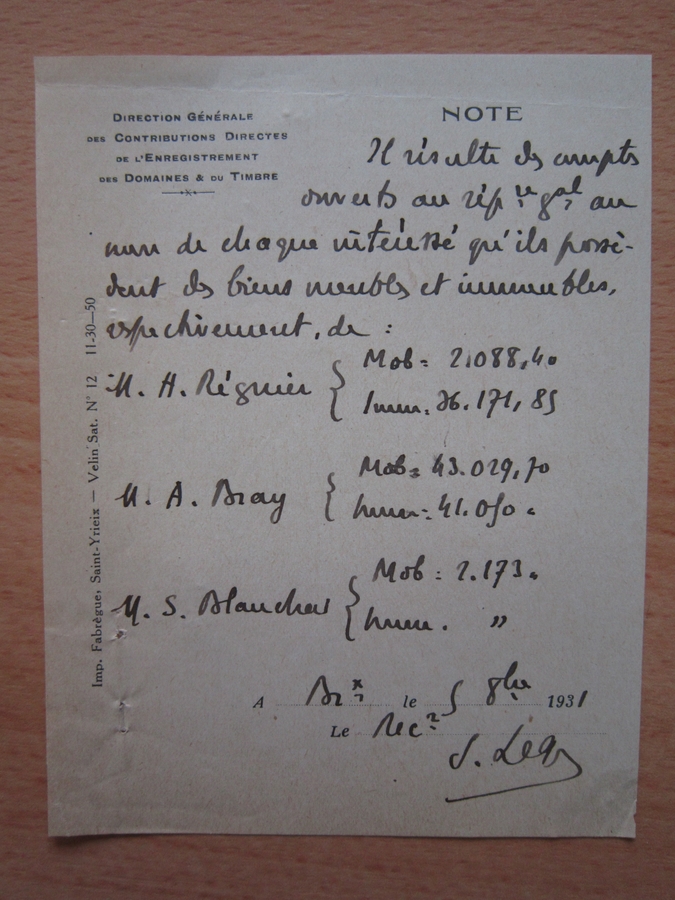 DIRECTION GÉNÉRALE
DES CONTRIBUTIONS DIRECTES
DE L'ENREGISTREMENT
DES DOMAINES & DU TIMBRE
NOTE
Il résulte des compts
ouverts au rép.re g.al au
nom de chaque intéressé qu'ils possè-
dent des biens meubles et immeubles,
respectivement, de :
M. H. Régnier { Mob = 2.088,40
Imm. = 36.171,85
M. A. Bray { Mob = 43.029,70
Imm. = 41.050.
M. S. Blanchar { Mob : 2.173.
Imm. "
A Br.x le 5 8bre 1931
Le Rec.r
Imp. Fabrègue, Saint-Yrieix — Velin Sat. N° 12 11-30—50